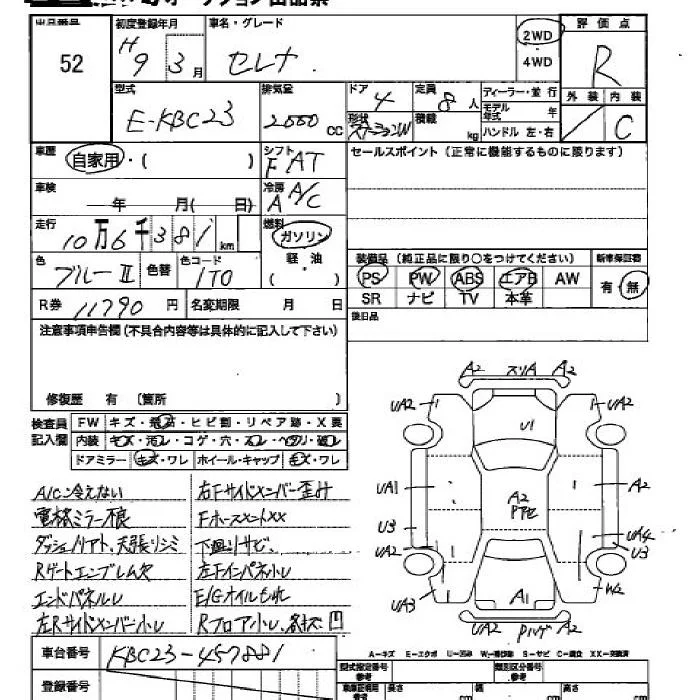 52
初度登録年月
H 9 3月
車名・グレード
セレナ
2WD
・
4WD
評価点
R
外装 内装
C
型式
E-KBC23
排気量
2000 CC
ドア
4
定員
8人
形状
ステーションW
積載
kg
ディーラー・並行
モデル年式 年
ハンドル 左・右
車歴
自家用・( )
シフト
F AT
セールスポイント(正常に機能するものに限ります)
車検
年 月( 日)
冷房
A A/C
走行
10万6千381km
燃料
ガソリン
軽油
( )
色
ブルーII
色替
色コード
1T0
装備品 (純正品に限り○をつけてください)
新車保証書
PS PW ABS エアB AW
SR ナビ TV 本革
有・無
R券 11790円
名変期限 月 日
後日品
注意事項申告欄(不具合内容等は具体的に記入して下さい)
修復歴 有 〔箇所 〕
検査員
記入欄
FW キズ・飛石・ヒビ割・リペア跡・X要
内装 キズ・汚レ・コゲ・穴・スレ・ヘタリ・破レ
ドアミラー キズ・ワレ ホイール・キャップ キズ・ワレ
A/C冷えない
電格ミラー不良
Rゲートエンブレム欠
エンドパネルU
左Rサイドメンバー小U
右Fサイドメンバー歪ミ
下廻りサビ、
左Fインパネ小U
E/Gオイルもれ
Rフロア小U、
A2 スリA A2
UA2 UA2
U1
UA1 A2
A2
U3 UA4
UA2 U3
UA3 A1 W2
UA2 A2
車台番号
KBC23-457881
登録番号
A-キズ E-エクボ U-凹み W-補修跡 S-サビ C-腐食 XX-交換済
型式指定番号
類別区分番号
長さ cm
幅 cm
高さ cm